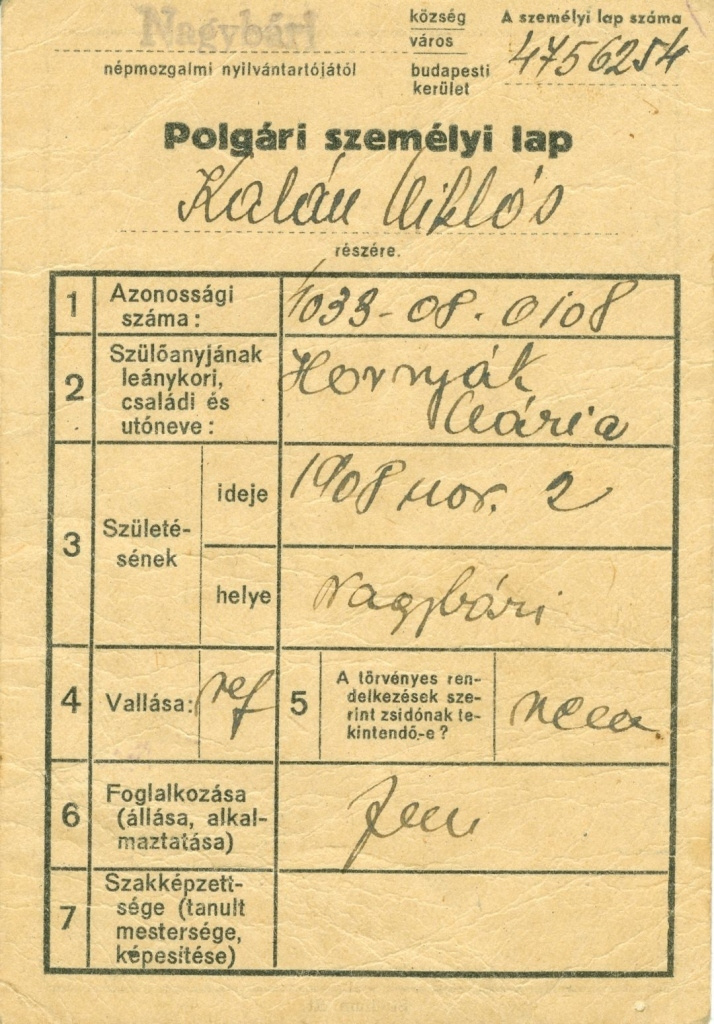 Nagybári
község
város
budapesti
kerület
A személyi lap száma
4756254
népmozgalmi nyilvántartójától
Polgári személyi lap
Kalán Miklós
részére.
1 Azonossági
száma:
1033-08.0108
2 Szülőanyjának
leánykori,
családi és
utóneve:
Hornyák
Mária
3 Születé-
sének
ideje 1908 nov. 2
helye Nagybári
4 Vallása: ref
5 A törvényes ren-
delkezések sze-
rint zsidónak te-
kintendő-e?
nem
6 Foglalkozása
(állása, alkal-
maztatása)
7 Szakképzett-
sége (tanult
mestersége,
képesítése)